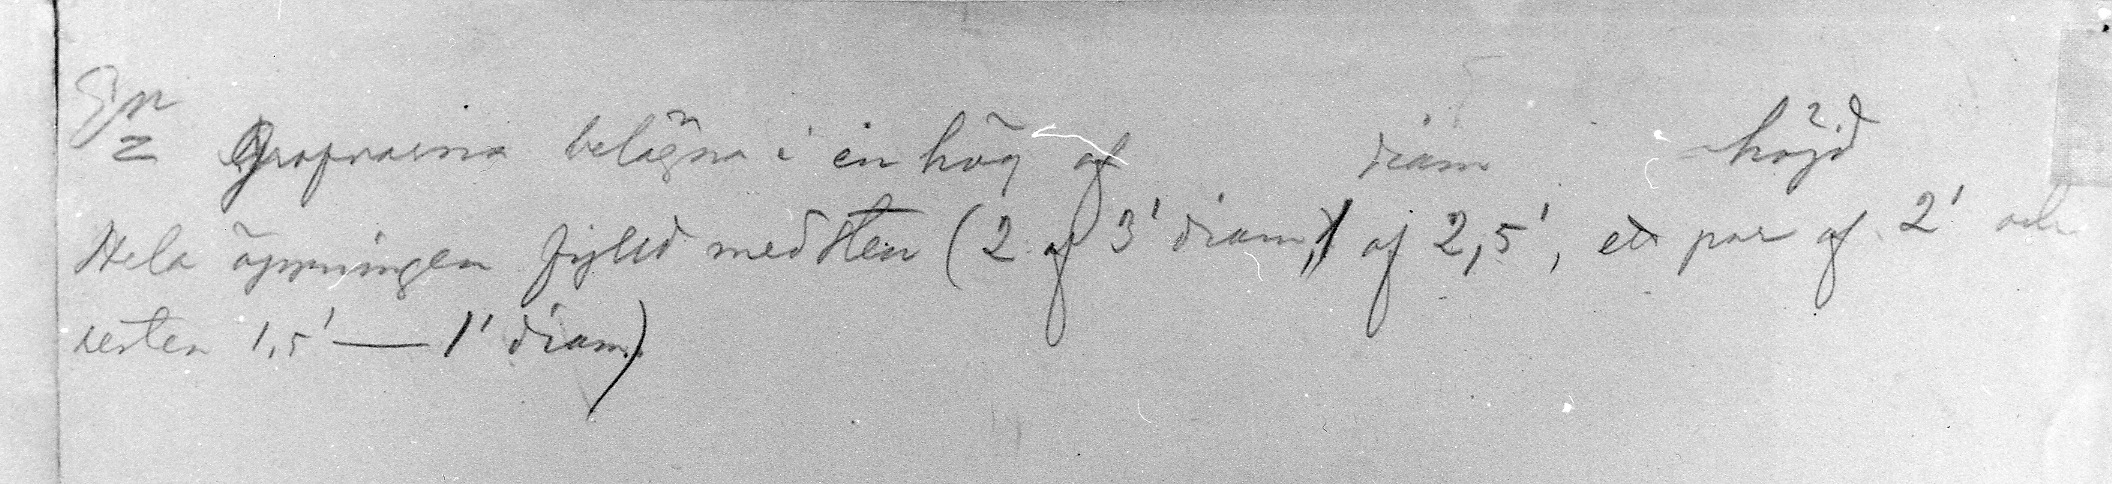 Groparna belägna i en hög af diam höjd
Hela öppningen fylld med sten (2 af 3' diam, 1 af 2,5', ett par af 2' och
resten 1,5' — 1' diam.)